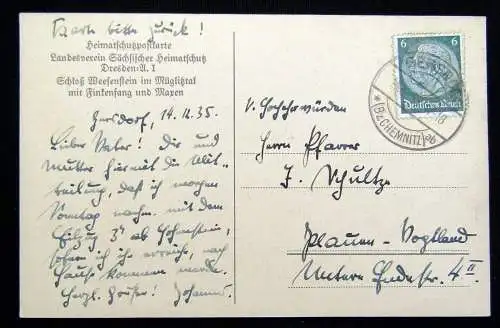 Karte bitte zurück!
Heimatschutzpostkarte
Landesverein Sächsischer Heimatschutz
Dresden-A. 1
Schloß Weesenstein im Müglitztal
mit Finkenfang und Maxen
Gersdorf, 14.11.35.
Lieber Vater! Dir und
Mutter hiermit die Mit-
teilung, daß ich morgen
Sonntag nachm. mit dem
Eilzug 3 ab Hohenstein,
sofern ich ihn erreiche, nach
Hause kommen werde.
Herzl. Grüße! Johannes.
6 6
Deutsches Reich
GERSDORF
* (Bz. CHEMNITZ) ob
Sr. Hochehrwürden
Herrn Pfarrer
J. Schultze
Plauen-Vogtland
Untere Endestr. 4 II